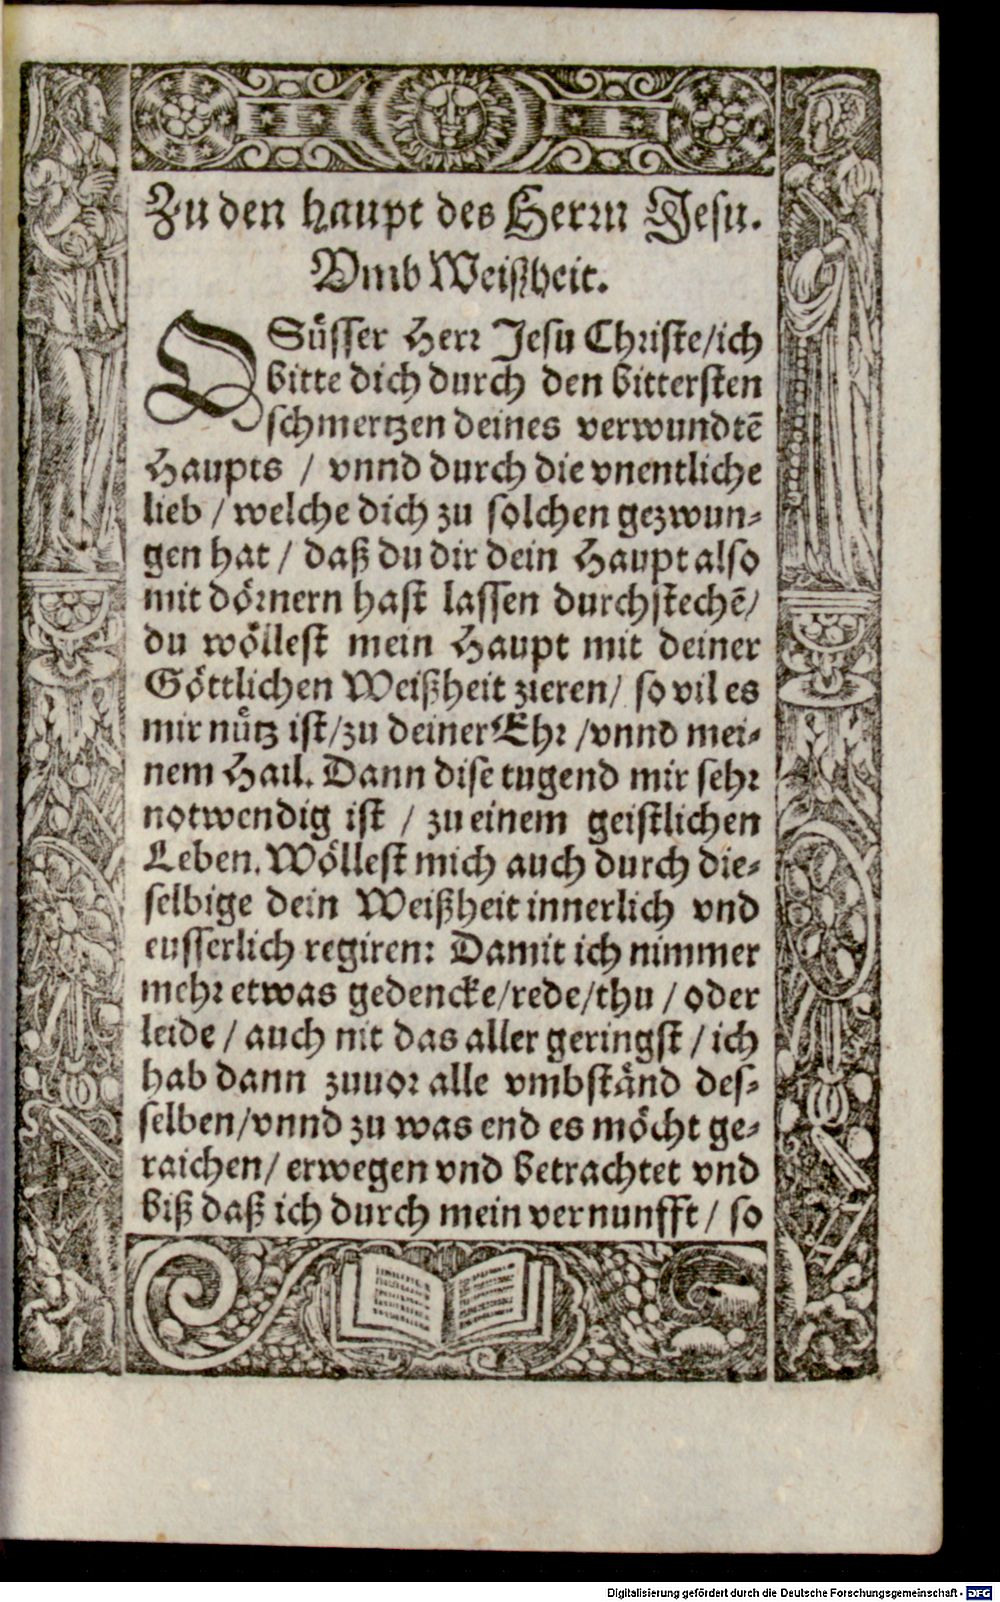 Zu den haupt des Herrn Jesu.
Vmb Weißheit.
O Süsser Herr Jesu Christe/ich
bitte dich durch den bittersten
schmertzen deines verwundtē
Haupts / vnnd durch die vnentliche
lieb / welche dich zu solchen gezwun-
gen hat / daß du dir dein Haupt also
mit dörnern hast lassen durchstechē/
du wöllest mein Haupt mit deiner
Göttlichen Weißheit zieren/ so vil es
mir nütz ist/zu deiner Ehr /vnnd mei-
nem Hail. Dann dise tugend mir sehr
notwendig ist / zu einem geistlichen
Leben. Wöllest mich auch durch die-
selbige dein Weißheit innerlich vnd
eusserlich regiren: Damit ich nimmer
mehr etwas gedencke/rede/thu / oder
leide / auch nit das aller geringst / ich
hab dann zuuor alle vmbständ des-
selben/vnnd zu was end es möcht ge-
raichen/ erwegen vnd betrachtet vnd
biß daß ich durch mein vernunfft / so
Digitalisierung gefördert durch die Deutsche Forschungsgemeinschaft - DFG